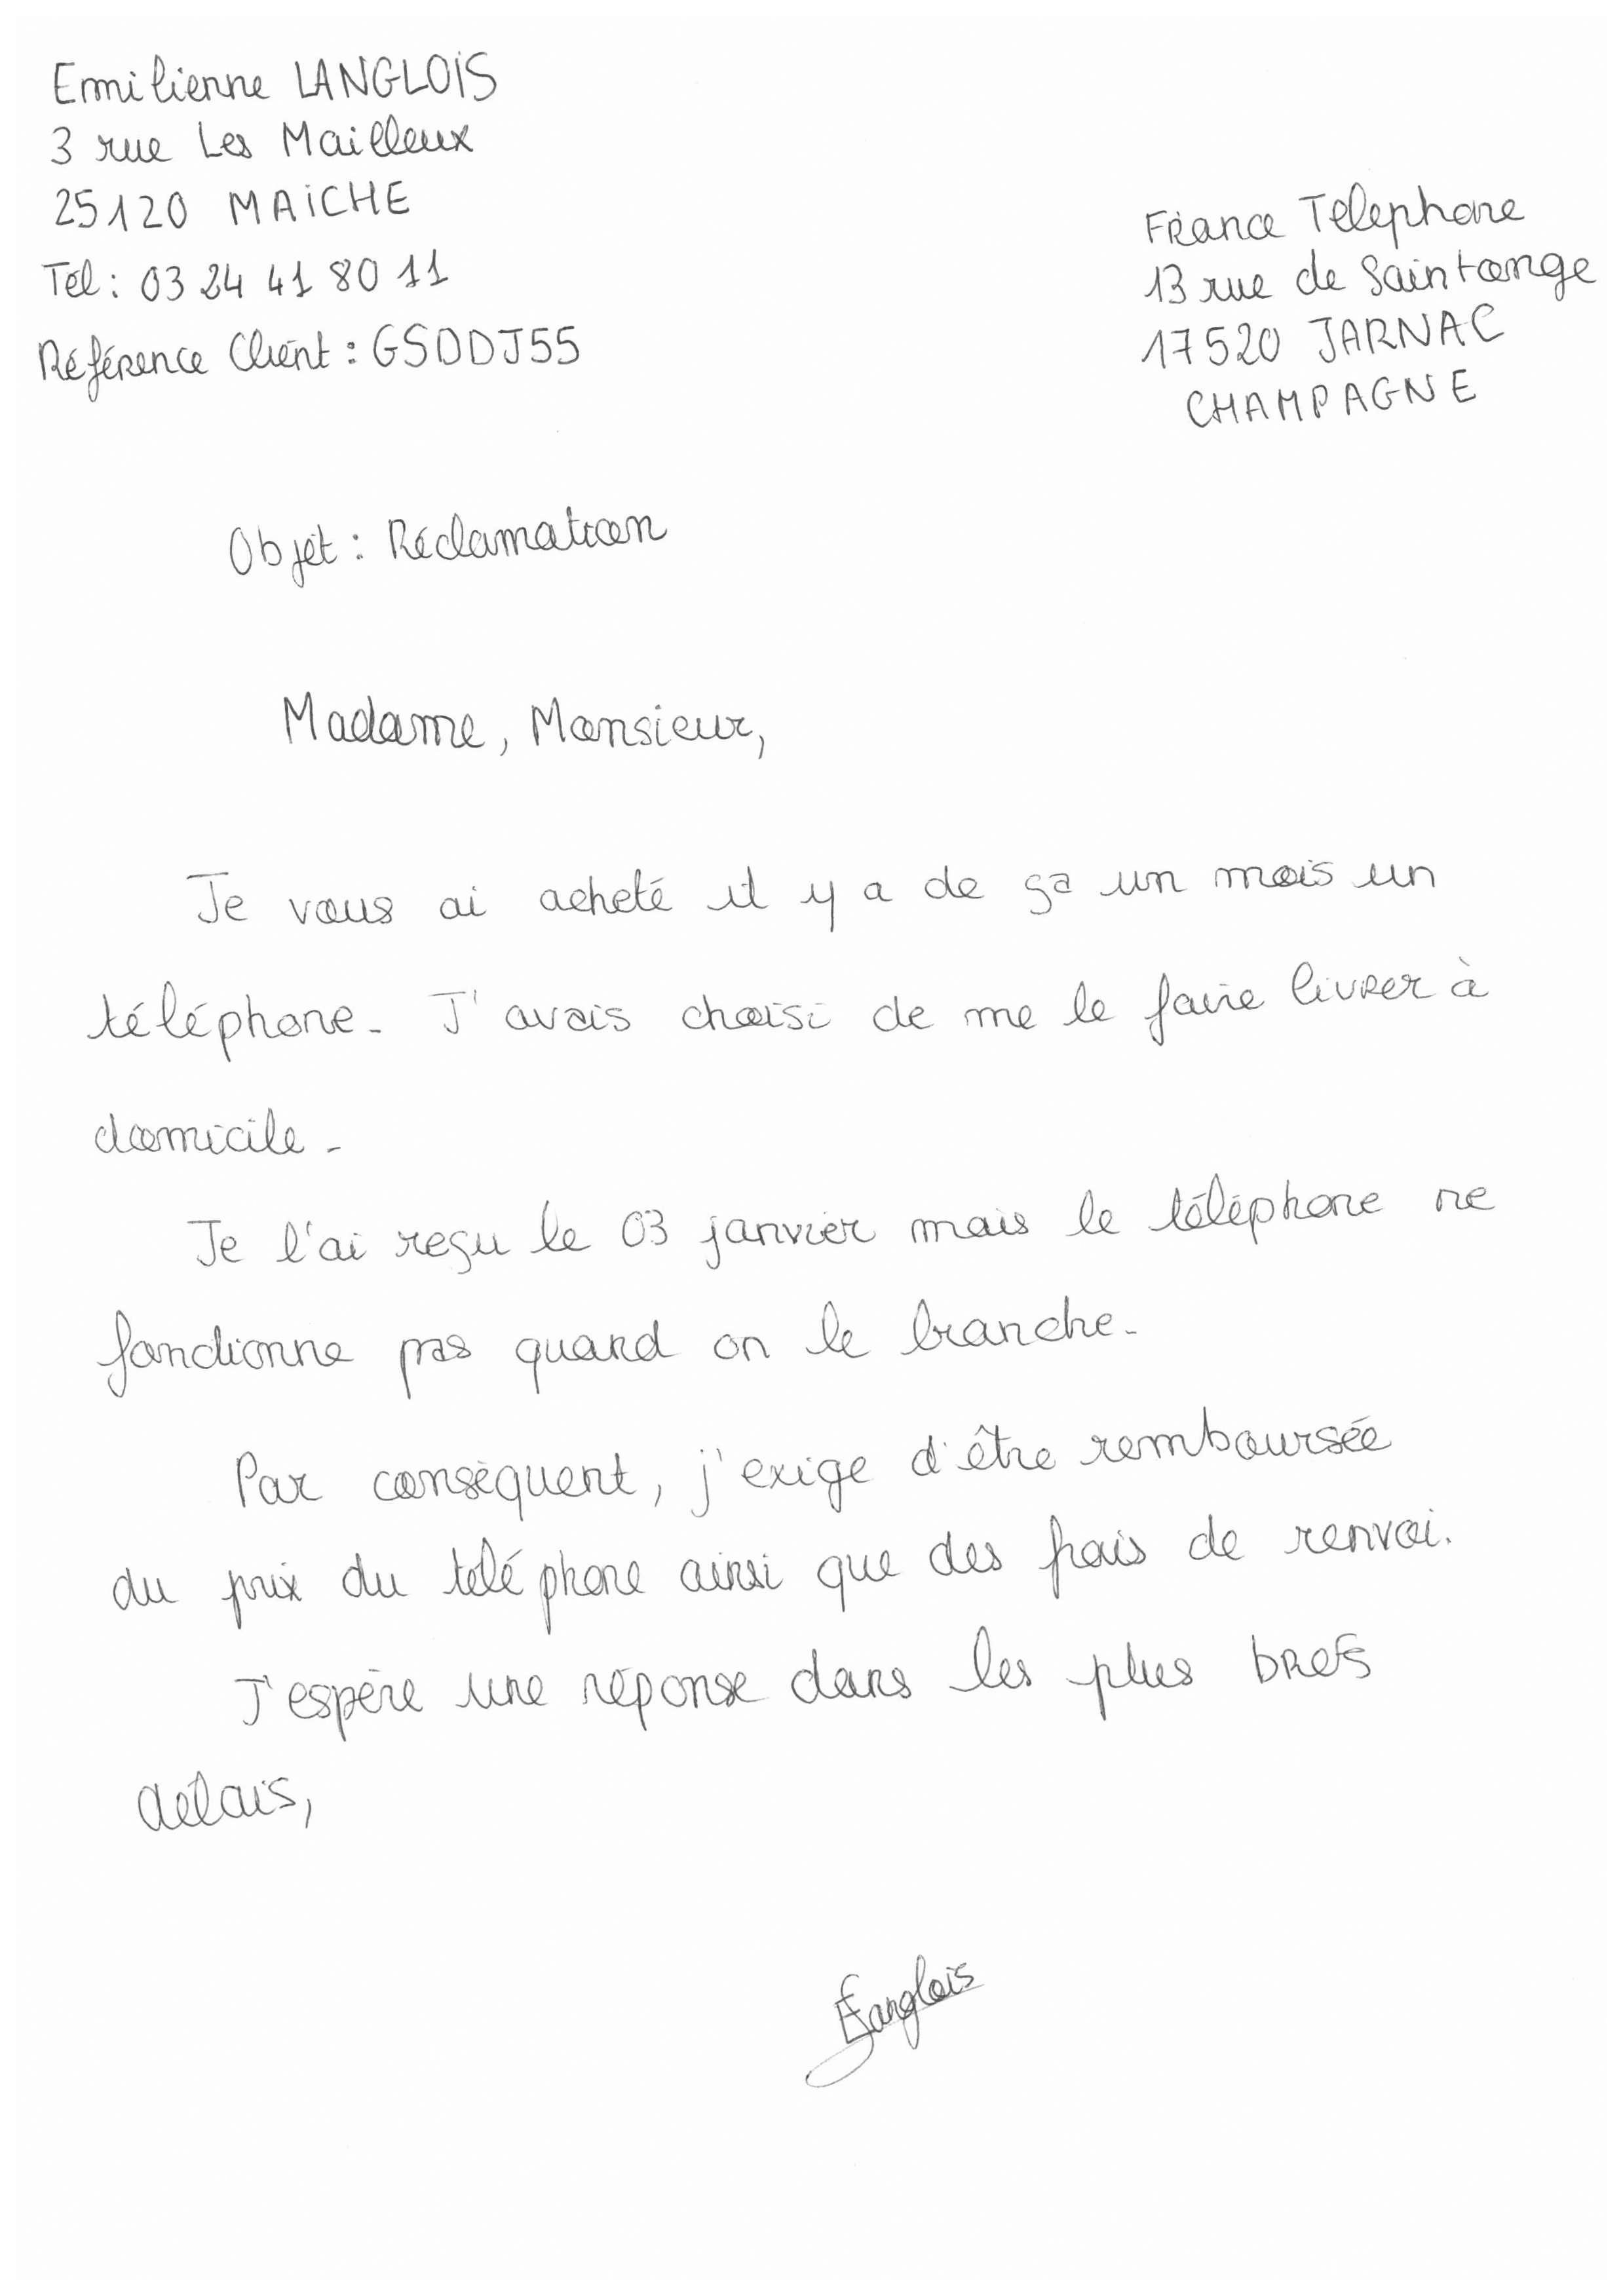 Emilienne LANGLOIS
3 rue Les Mailleux
25120 MAICHE
Tél : 03 24 41 80 11
Référence Client : GSDDJ55
France Telephone
13 rue de Saintonge
17520 JARNAC
CHAMPAGNE
Objet : Réclamation
Madame, Monsieur,
Je vous ai acheté il y a de ça un mois un
téléphone. J'avais choisi de me le faire livrer à
domicile.
Je l'ai reçu le 03 janvier mais le téléphone ne
fonctionne pas quand on le branche.
Par conséquent, j'exige d'être remboursée
du prix du téléphone ainsi que des frais de renvoi.
J'espère une réponse dans les plus brefs
délais,
ELanglois